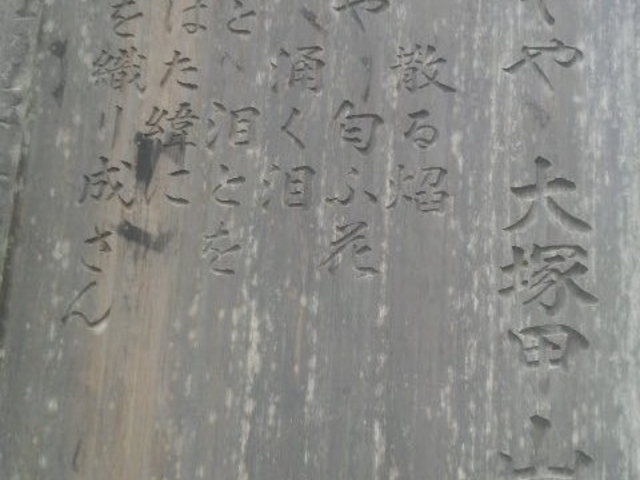 や、大塚甲山
散る焔
や、匂ふ花
湧く泪
と、泪とを
はた緯に
を織り成さん